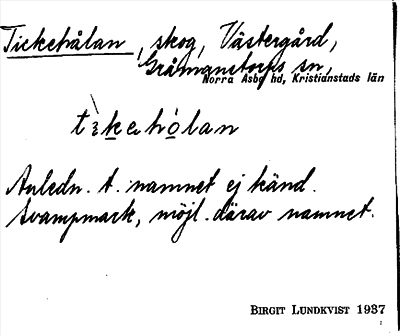 Tickehålan, skog, Västergård,
Gråmanstorps sn,
Norra Åsbo hd, Kristianstads län
tìkehólan
Anledn. t. namnet ej känd.
Svampmark, möjl. därav namnet.
BIRGIT LUNDKVIST 1937